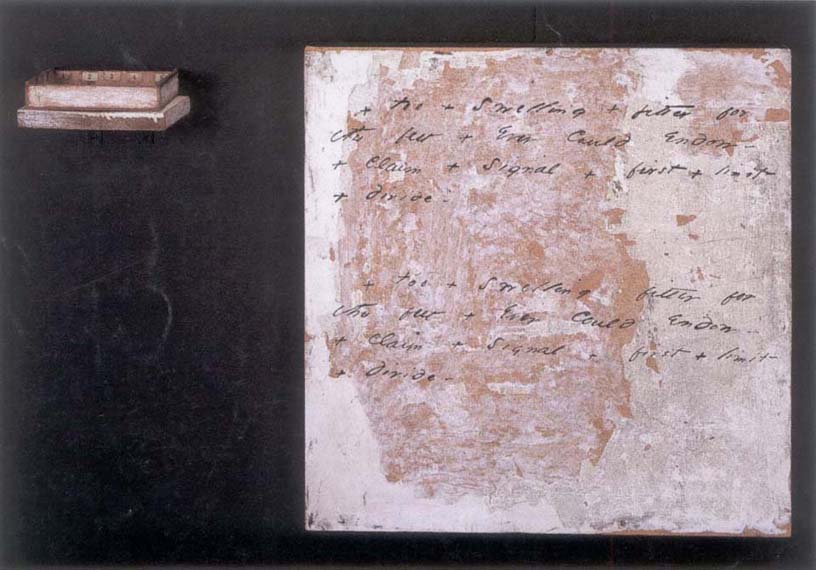 + too + Smelling + fitter for
the few + Ever Could Endon-
+ Claim + Signal + first + limit
+ divide -
+ too + Smelling fitter for
the few + Ever Could Endon-
+ Claim + Signal + first + limit-
+ divide -